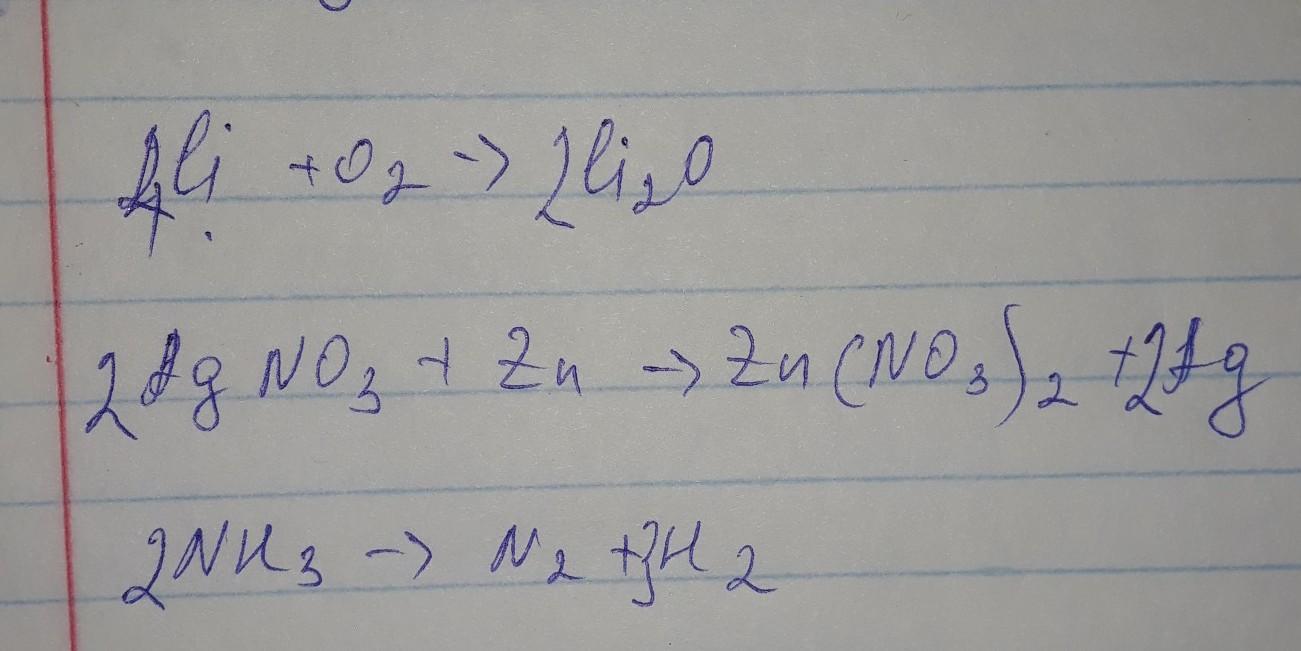 4Li + O₂ → 2Li₂O
2AgNO₃ + Zn → Zn(NO₃)₂ + 2Ag
2NH₃ → N₂ + 3H₂